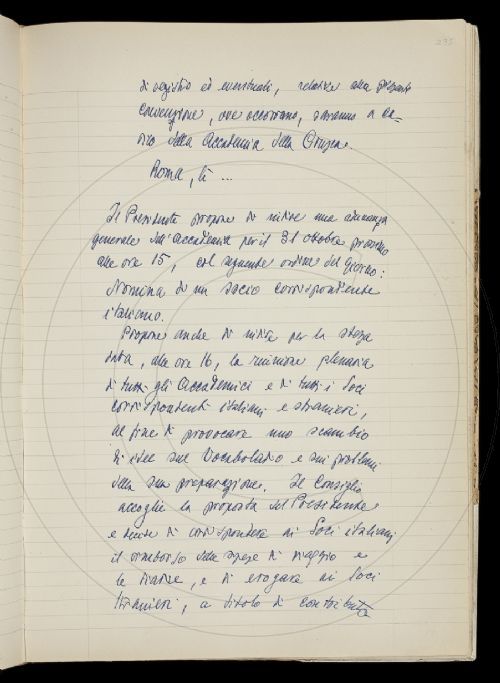 235
di registro ed eventuali, relative alla presente
convenzione, ove occorrano, saranno a ca-
rico della Accademia della Crusca.
Roma, lì ...
Il Presidente propone di indire una adunanza
generale dell'Accademia per il 31 ottobre prossimo
alle ore 15, col seguente ordine del giorno:
Nomina di un socio corrispondente
italiano.
Propone anche di indire per la stessa
data, alle ore 16, la riunione plenaria
di tutti gli Accademici e di tutti i Soci
corrispondenti italiani e stranieri,
al fine di provocare uno scambio
di idee sul Vocabolario e sui problemi
della sua preparazione. Il Consiglio
accoglie la proposta del Presidente
e decide di corrispondere ai Soci italiani
il rimborso delle spese di viaggio e
le diarie, e di erogare ai Soci
stranieri, a titolo di contributo